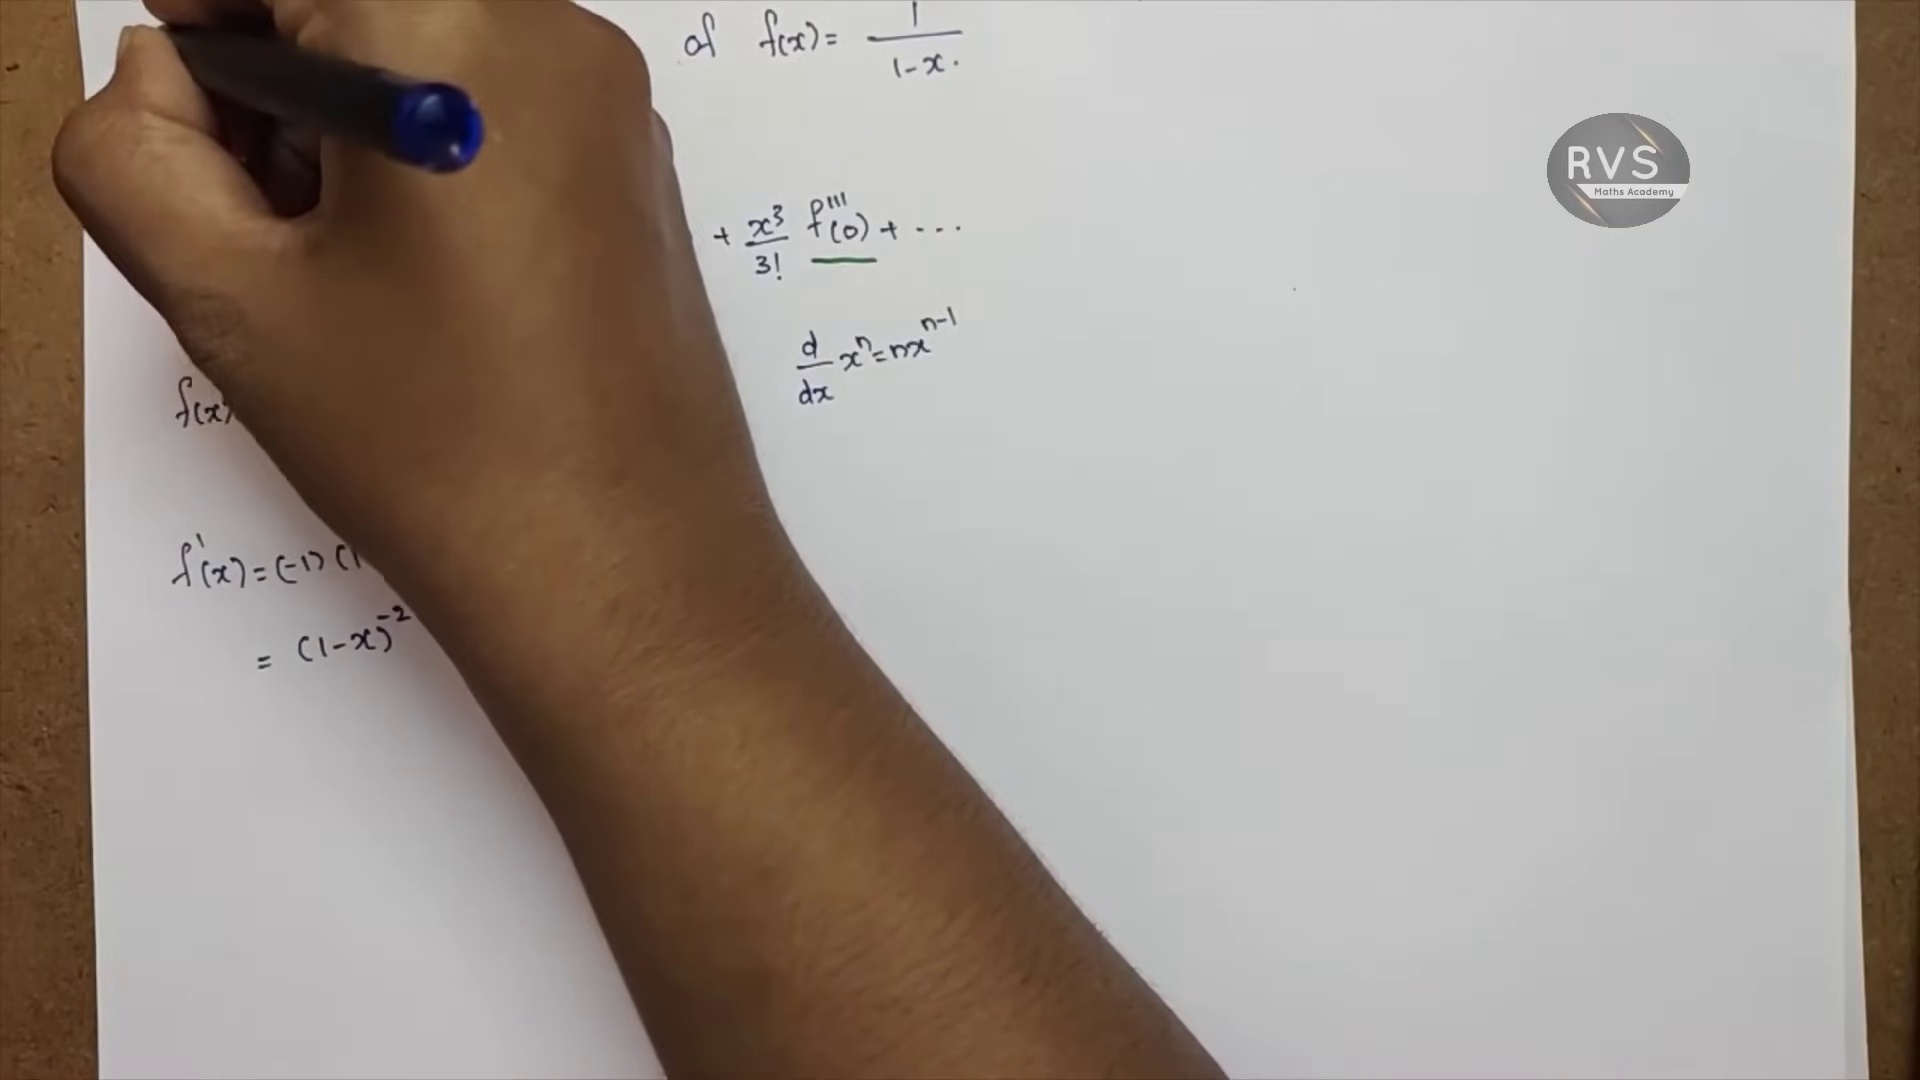 of f(x) = 1/(1-x).
RVS
Maths Academy
+ x³/3! f'''(0) + ...
d/dx xⁿ = nxⁿ⁻¹
f(x)
f'(x) = (-1) (1
= (1-x)⁻²